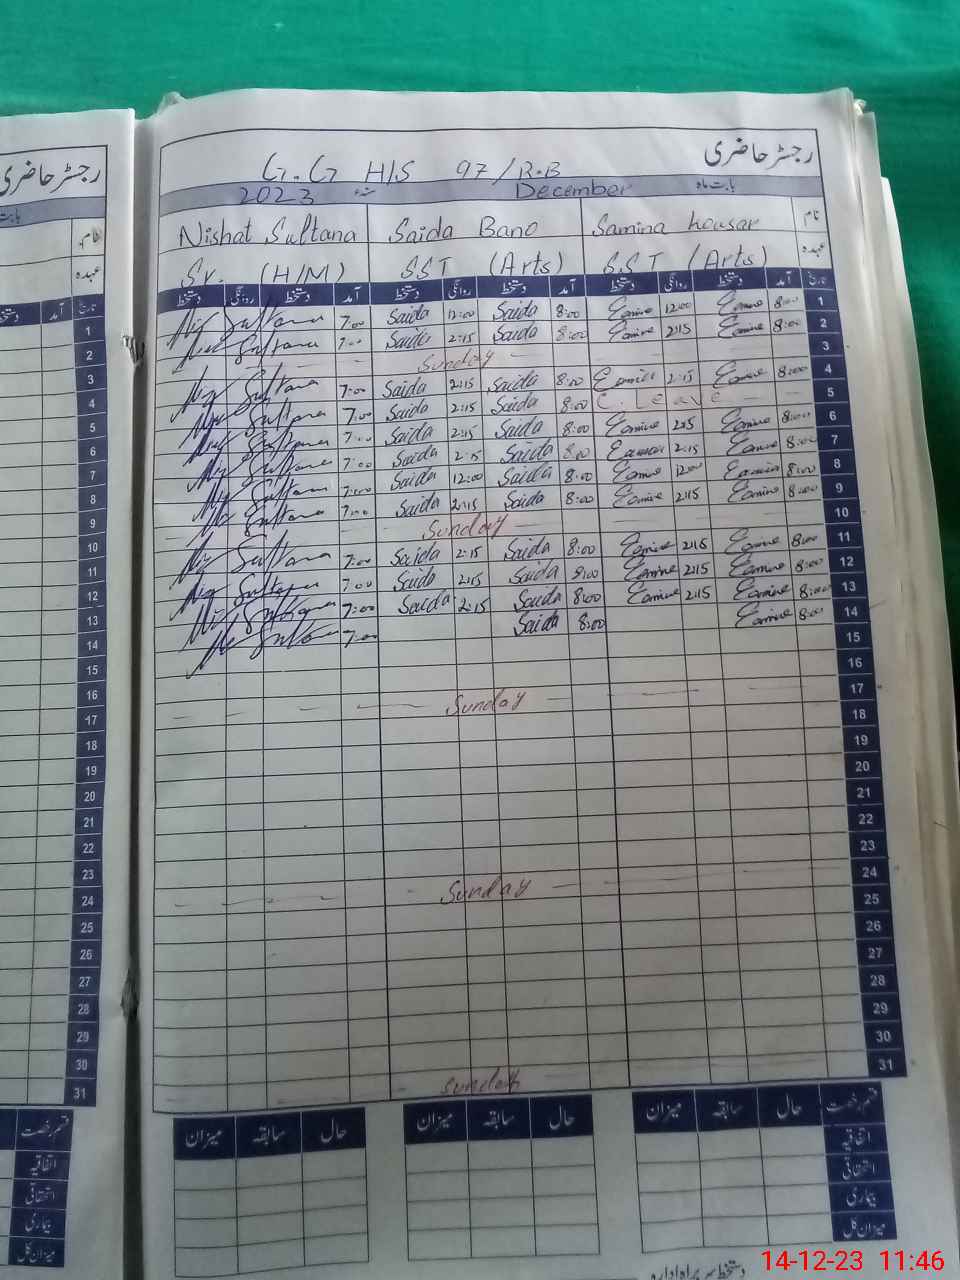 رجسٹر حاضری
G.G H/S 97/R.B
بابت ماہ December سنہ 2023
نام Samina kousar Saida Bano Nishat Sultana
عہدہ S.S.T (Arts) S.S.T (Arts) Sr. (H/M)
تاریخ آمد دستخط روانگی دستخط آمد دستخط روانگی دستخط آمد دستخط روانگی دستخط
1 8:00 12:00 8:00 Saida 12:00 Saida 7:00 Sultana
2 8:00 2:15 8:00 Saida 2:15 Saida 7:00 Sultana
3 Sunday
4 8:00 2:15 8:00 Saida 2:15 Saida 7:00 Sultana
5 C. Leave 8:00 Saida 2:15 Saida 7:00 Sultana
6 8:00 2:15 8:00 Saida 2:15 Saida 7:00 Sultana
7 8:00 2:15 8:00 Saida 2:15 Saida 7:00 Sultana
8 8:00 12:00 8:00 Saida 12:00 Saida 7:00 Sultana
9 8:00 2:15 8:00 Saida 2:15 Saida 7:00 Sultana
10 Sunday
11 8:00 2:15 8:00 Saida 2:15 Saida 7:00 Sultana
12 8:00 2:15 8:00 Saida 2:15 Saida 7:00 Sultana
13 8:00 2:15 8:00 Saida 2:15 Saida 7:00 Sultana
14 8:00 8:00 Saida 7:00 Sultana
15
16
17 Sunday
18
19
20
21
22
23
24 Sunday
25
26
27
28
29
30
31 Sunday
قسم رخصت حال سابقہ میزان حال سابقہ میزان حال سابقہ میزان
اتفاقیہ
استحقاقی
بیماری
میزان کل
دستخط سربراہ ادارہ
رجسٹر حاضری
بابت
نام
عہدہ
تاریخ آمد
1
2
3
4
5
6
7
8
9
10
11
12
13
14
15
16
17
18
19
20
21
22
23
24
25
26
27
28
29
30
31
قسم رخصت
اتفاقیہ
استحقاقی
بیماری
میزان کل
14-12-23 11:46